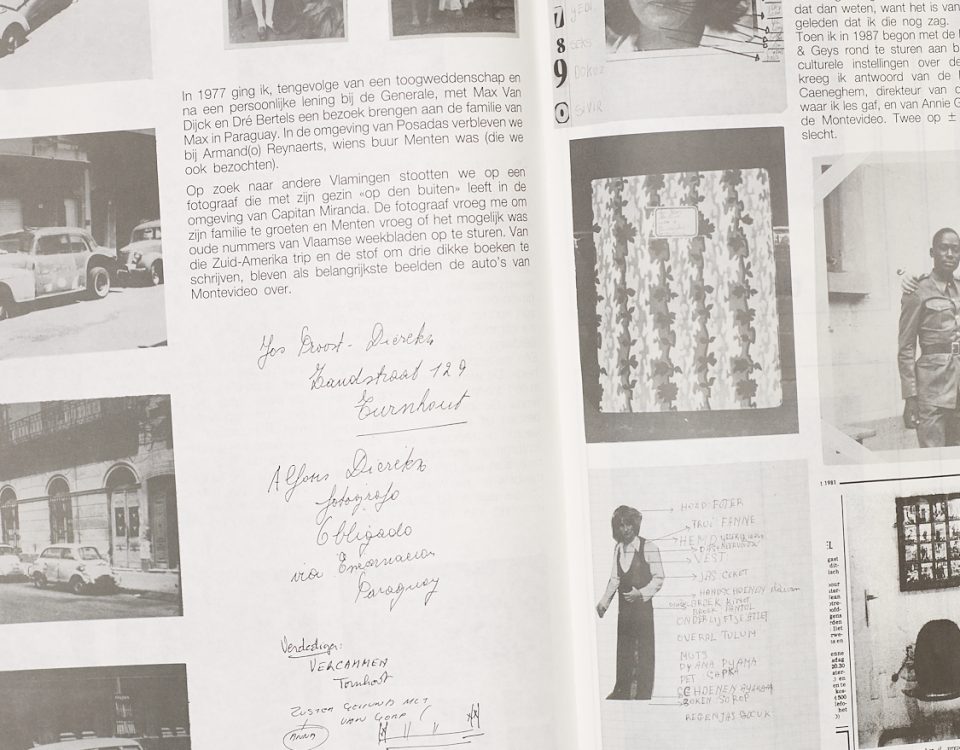 In 1977 ging ik, tengevolge van een toogweddenschap en
na een persoonlijke lening bij de Generale, met Max Van
Dijck en Dré Bertels een bezoek brengen aan de familie van
Max in Paraguay. In de omgeving van Posadas verbleven we
bij Armand(o) Reynaerts, wiens buur Menten was (die we
ook bezochten).
Op zoek naar andere Vlamingen stootten we op een
fotograaf die met zijn gezin «op den buiten» leeft in de
omgeving van Capitan Miranda. De fotograaf vroeg me om
zijn familie te groeten en Menten vroeg of het mogelijk was
oude nummers van Vlaamse weekbladen op te sturen. Van
die Zuid-Amerika trip en de stof om drie dikke boeken te
schrijven, bleven als belangrijkste beelden de auto's van
Montevideo over.
Jos Proost - Dierckx
Zandstraat 129
Turnhout
Alfons Dierckx
fotografo
Obligado
via Encarnacion
Paraguay
Verdediger:
VERCAMMEN
Turnhout
ZUSTER
VAN GORP
ANNA
7
8
9
0
DOKUZ
SIVIR
dat dan weten, want het is van
geleden dat ik die nog zag.
Toen ik in 1987 begon met de
& Geys rond te sturen aan b
culturele instellingen over de
kreeg ik antwoord van de
Caeneghem, direkteur van d
waar ik les gaf, en van Annie G
de Montevideo. Twee op ±
slecht.
HOED FOTER
HEMD
VEST
JAS CEKET
HANDSCHOENEN
ONDERLIJFTJE
OVERAL TULUM
MUTS
PYAMA PYAMA
PET SAPKA
SCHOENEN
REGENJAS
t 1981